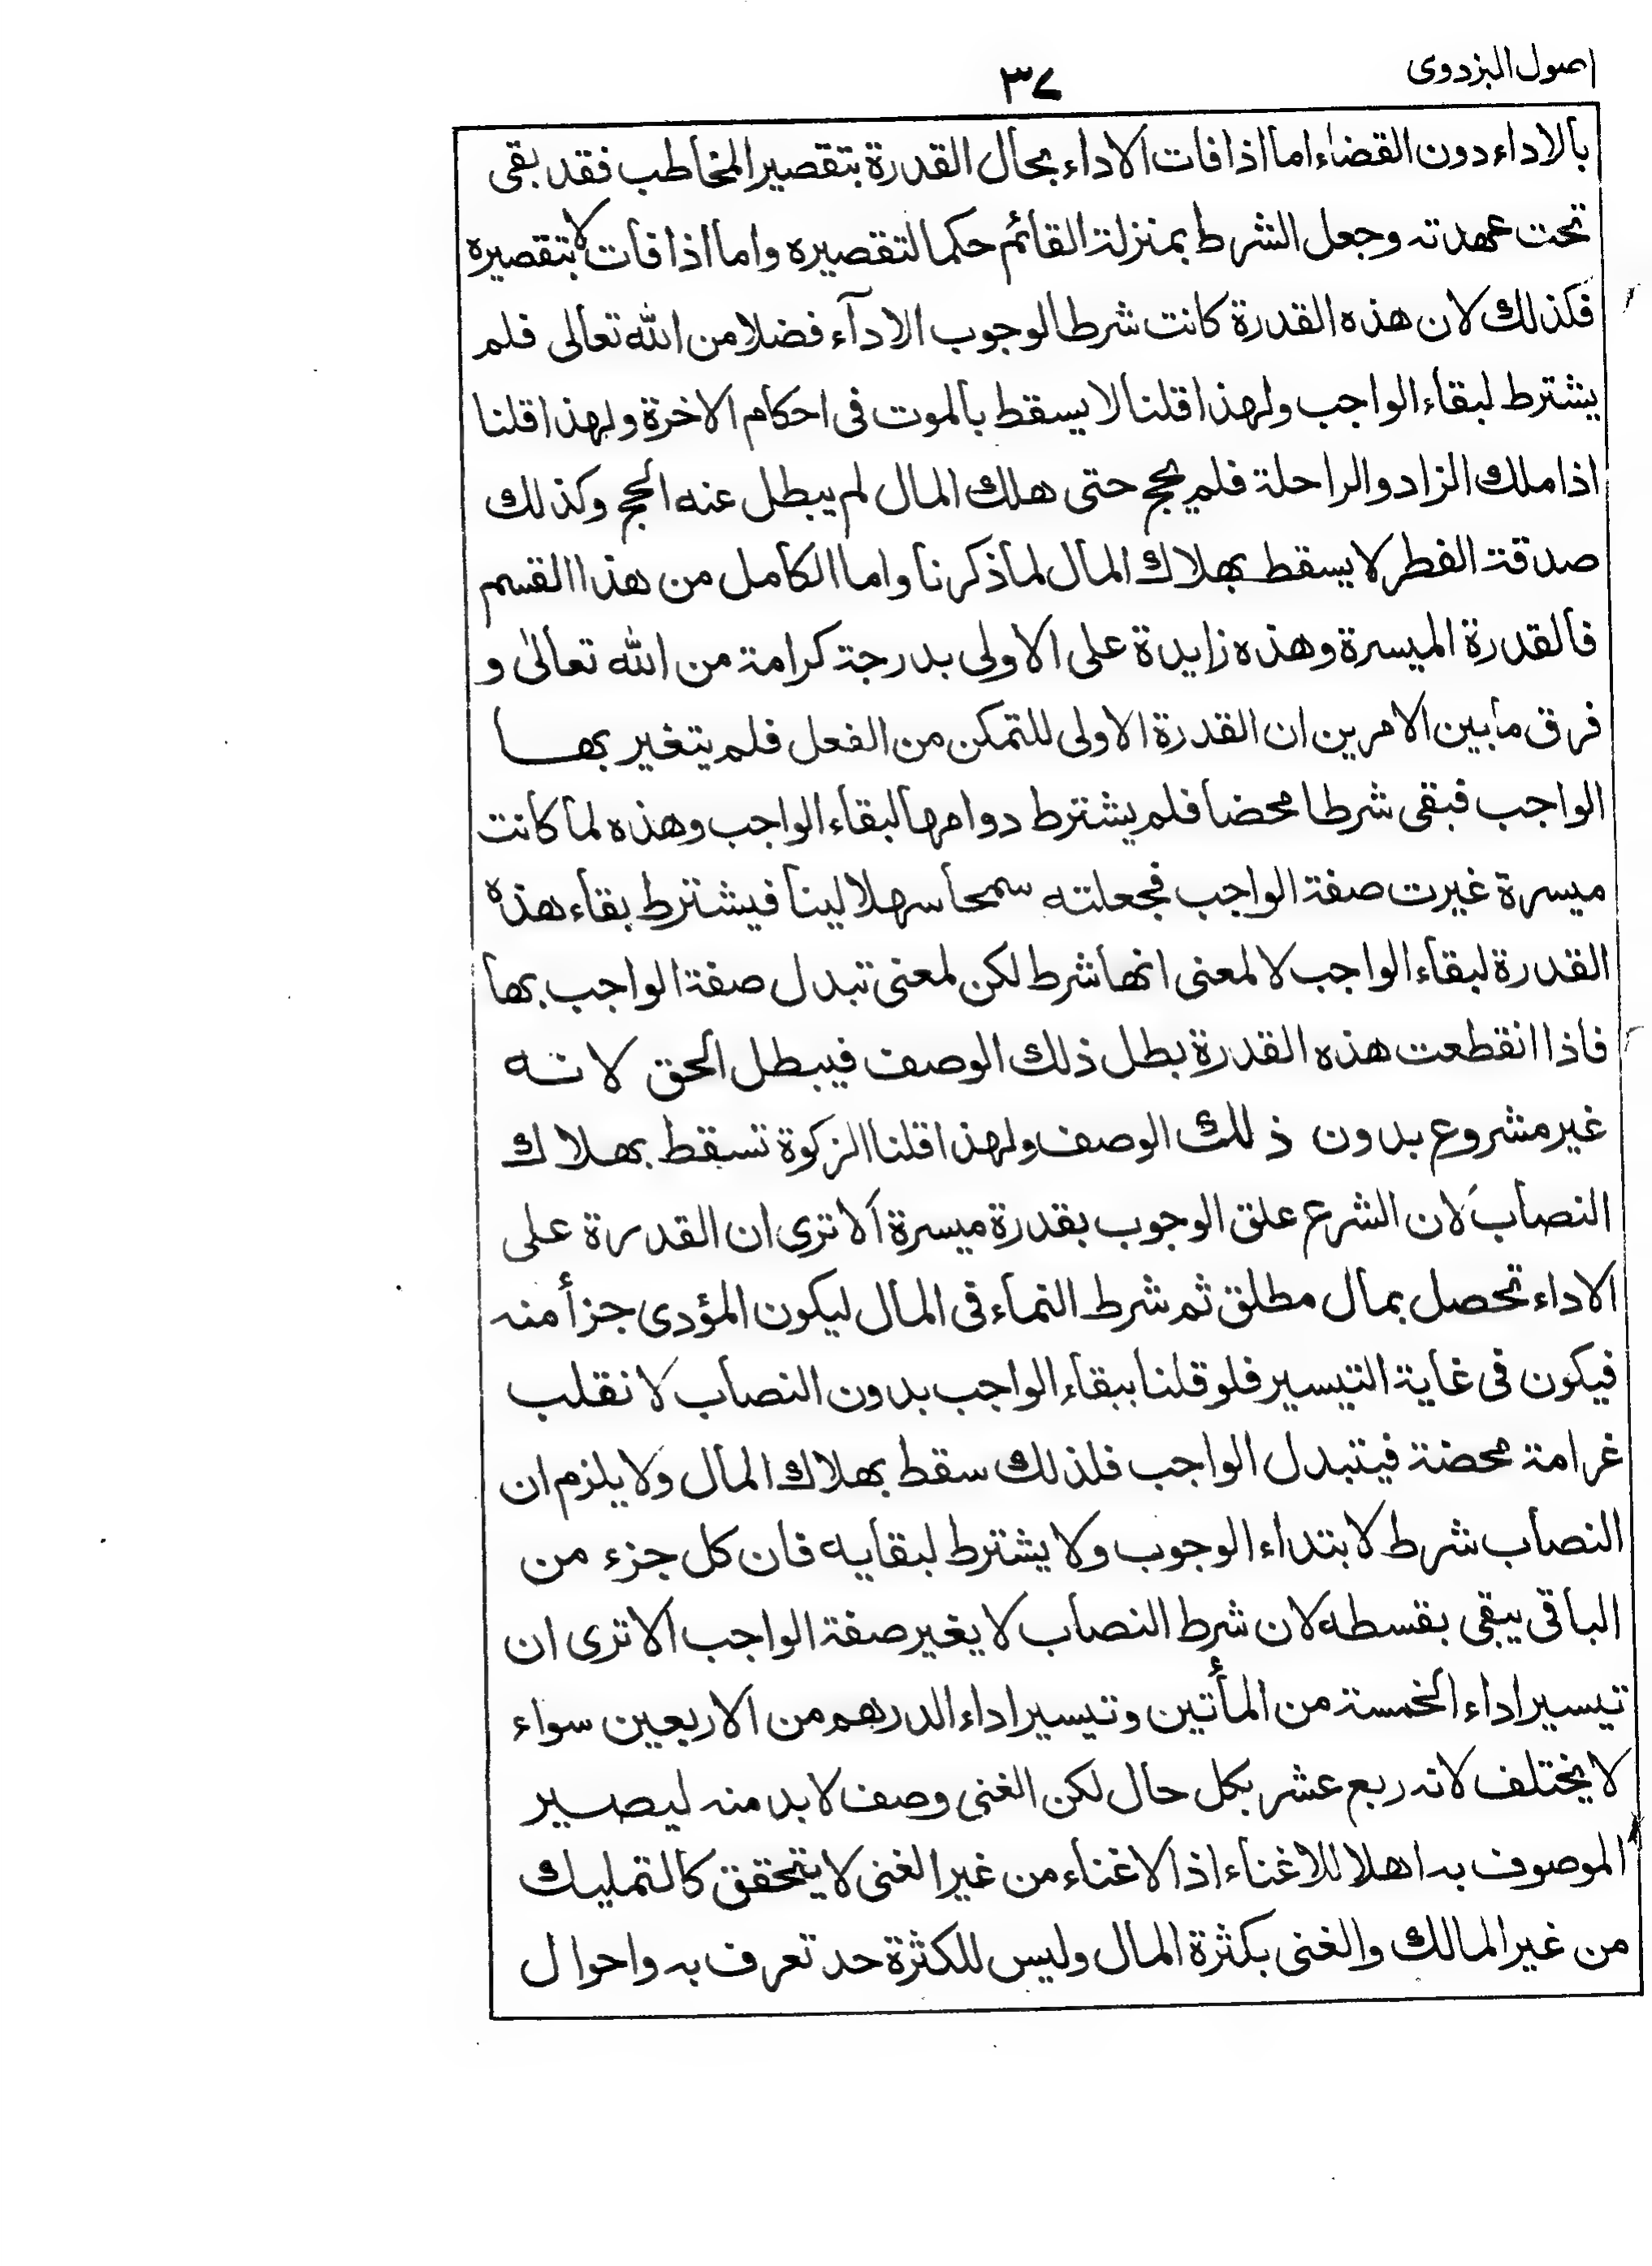 اصول البزدوی
٣٧
بالاداء دون القضاء اما اذا فات الاداء بحال القدرة بتقصير المخاطب فقد بقى
تحت عهدته وجعل الشرط بمنزلة القائم حكما لتقصيره واما اذا فات لا بتقصيره
فكذلك لان هذه القدرة كانت شرطا لوجوب الادآء فضلا من الله تعالى فلم
يشترط لبقاء الواجب ولهذا قلنا لا يسقط بالموت فى احكام الاخرة ولهذا قلنا
اذا ملك الزاد والراحلة فلم يحج حتى هلك المال لم يبطل عنه الحج وكذلك
صدقة الفطر لا يسقط بهلاك المال لما ذكرنا واما الكامل من هذا القسم
فالقدرة الميسرة وهذه زايدة على الاولى بدرجة كرامة من الله تعالىٰ و
فرق ما بين الامرين ان القدرة الاولى للتمكن من الفعل فلم يتغير بها
الواجب فبقى شرطا محضا فلم يشترط دوامها لبقاء الواجب وهذه لما كانت
ميسرة غيرت صفة الواجب فجعلته سمحا سهلا لينا فيشترط بقاء هذه
القدرة لبقاء الواجب لا لمعنى انها شرط لكن لمعنى تبدل صفة الواجب بها
فاذا انقطعت هذه القدرة بطل ذلك الوصف فيبطل الحق لانه
غير مشروع بدون ذلك الوصف ولهذا قلنا الزكوة تسقط بهلاك
النصاب لان الشرع علق الوجوب بقدرة ميسرة الا ترى ان القدرة على
الاداء تحصل بمال مطلق ثم شرط النماء فى المال ليكون المؤدى جزأ منه
فيكون فى غاية التيسير فلو قلنا ببقاء الواجب بدون النصاب لانقلب
غرامة محضة فيتبدل الواجب فلذلك سقط بهلاك المال ولا يلزم ان
النصاب شرط لابتداء الوجوب ولا يشترط لبقايه فان كل جزء من
الباقى يبقى بقسطه لان شرط النصاب لا يغير صفة الواجب الا ترى ان
تيسير اداء الخمسة من المأتين وتيسير اداء الدرهم من الاربعين سواء
لا يختلف لانه ربع عشر بكل حال لكن الغنى وصف لا بد منه ليصير
الموصوف به اهلا للاغناء اذ الاغناء من غير الغنى لا يتحقق كالتمليك
من غير المالك والغنى بكثرة المال وليس للكثرة حد تعرف به واحوال